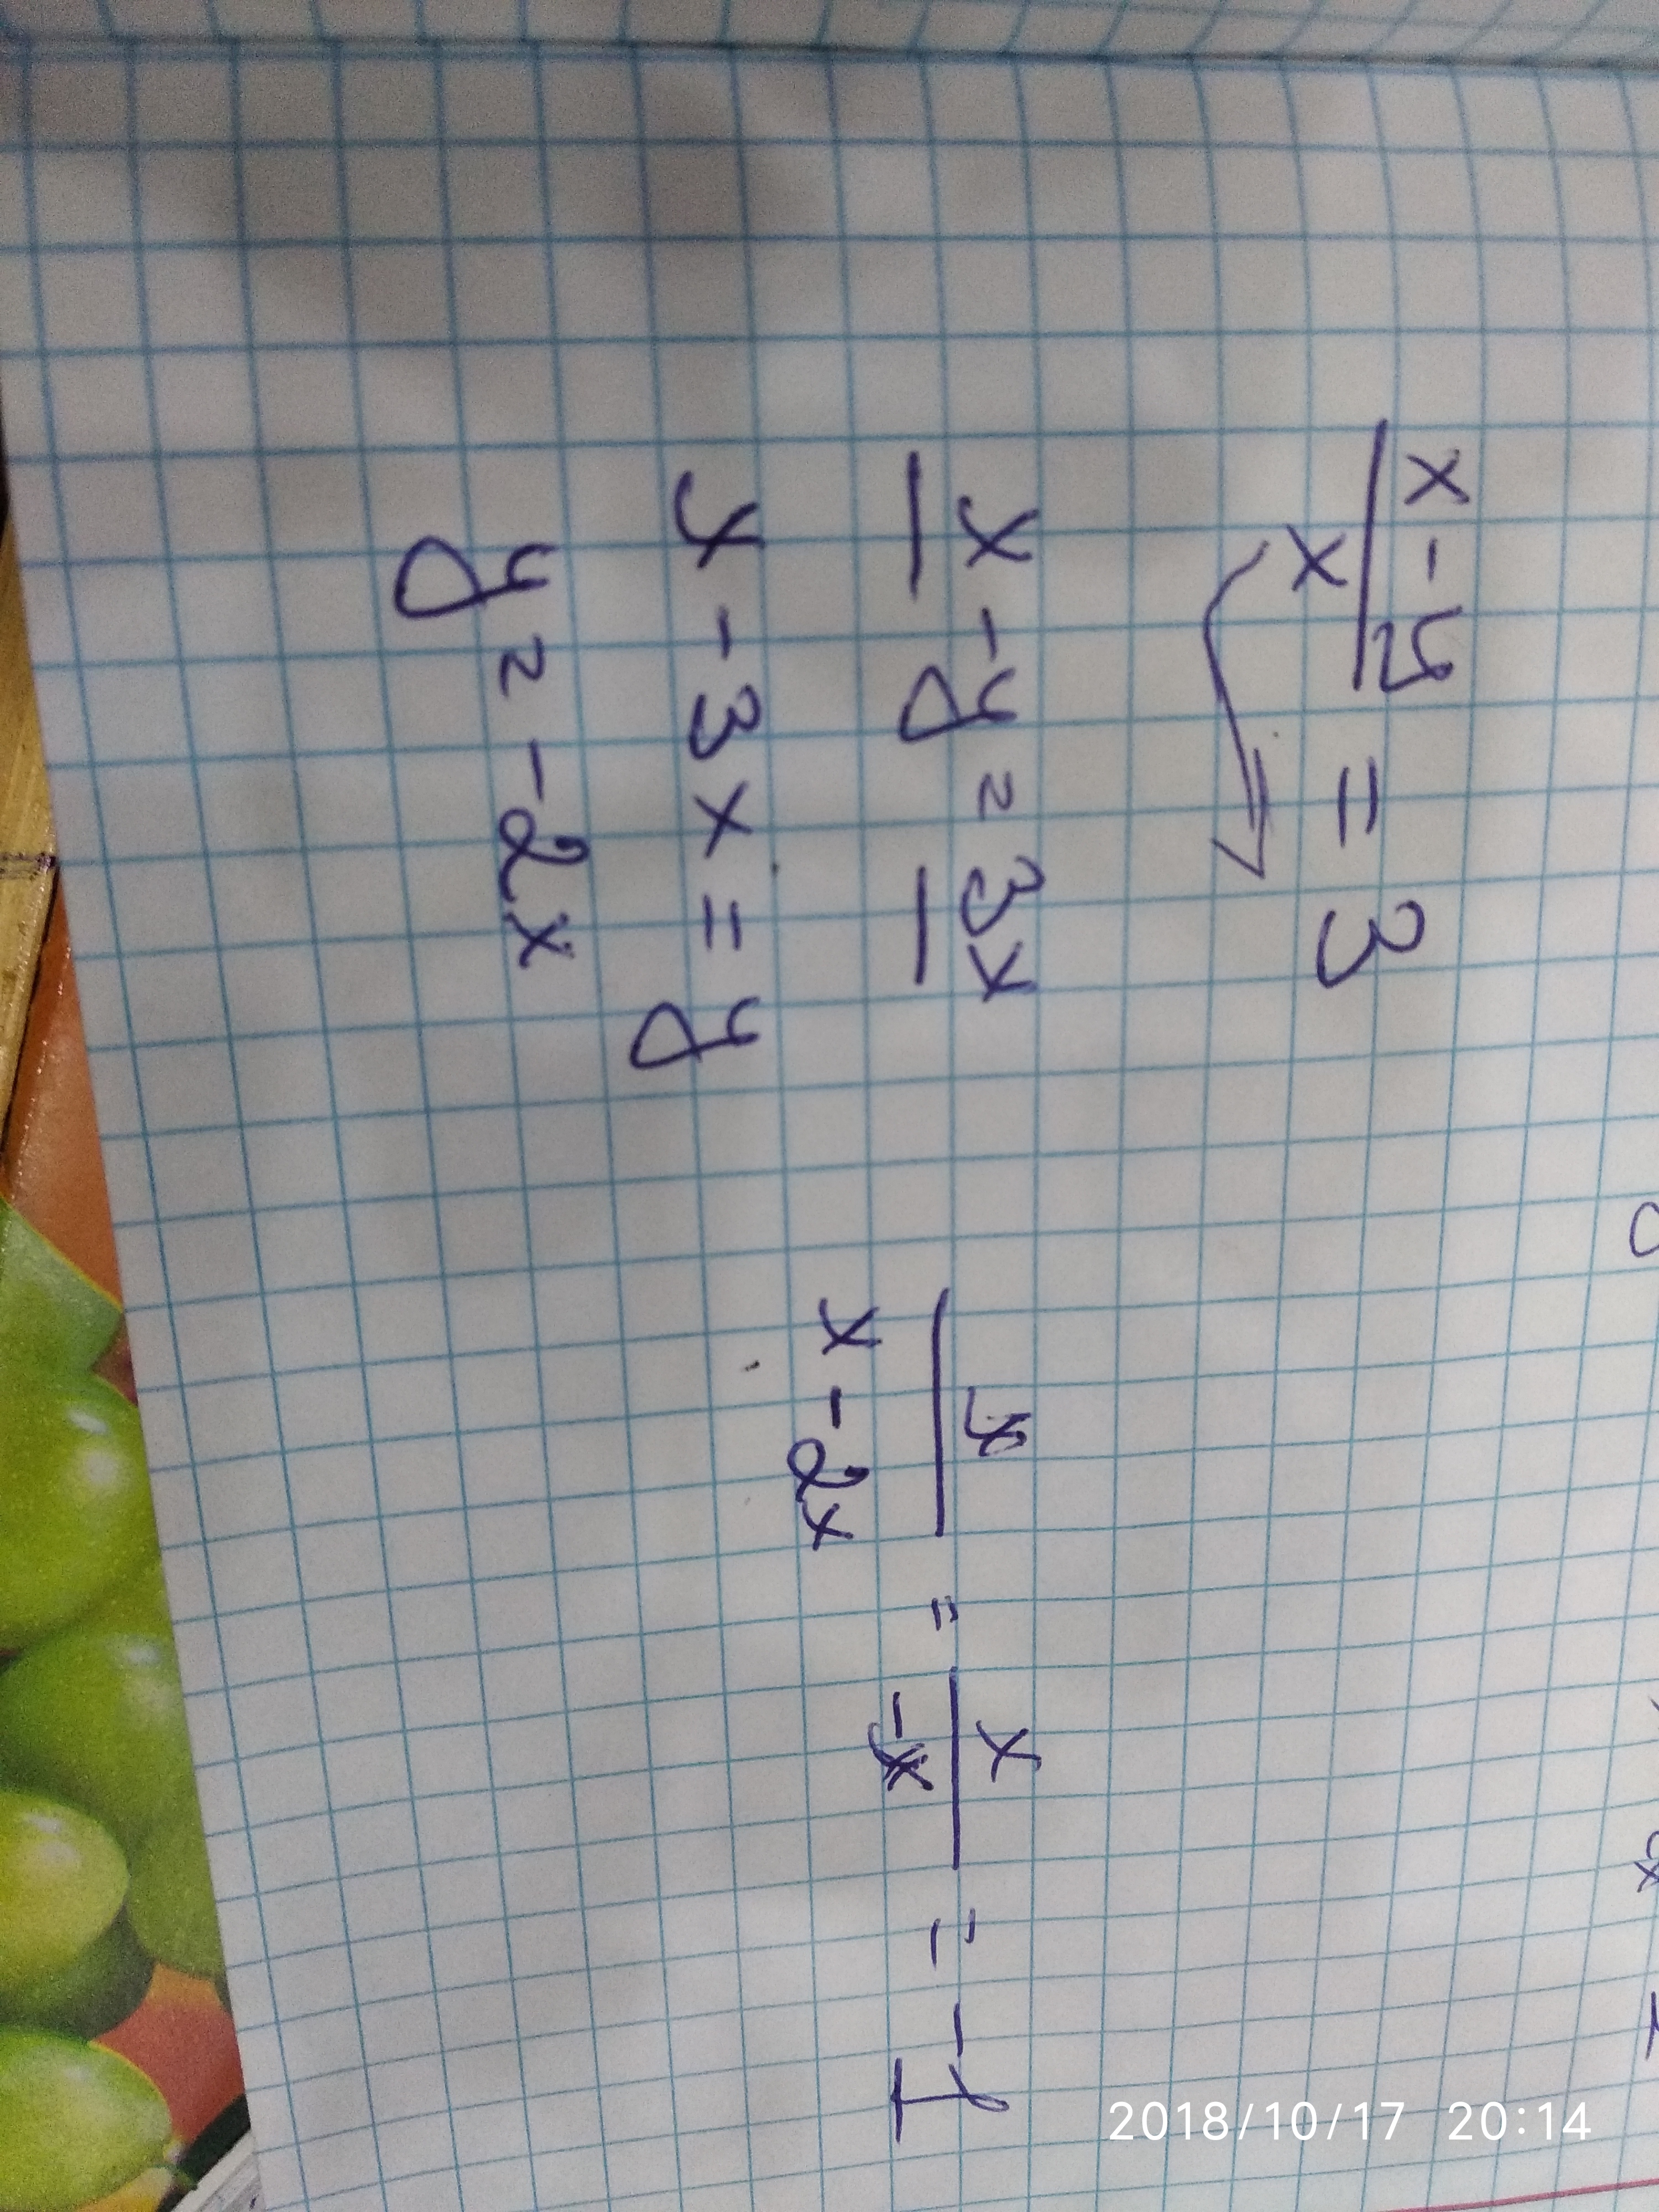 x - y / x = 3
x - y = 3x
x - 3x = y
y = -2x
x / x - 2x = x / -x = -1
2018/10/17 20:14